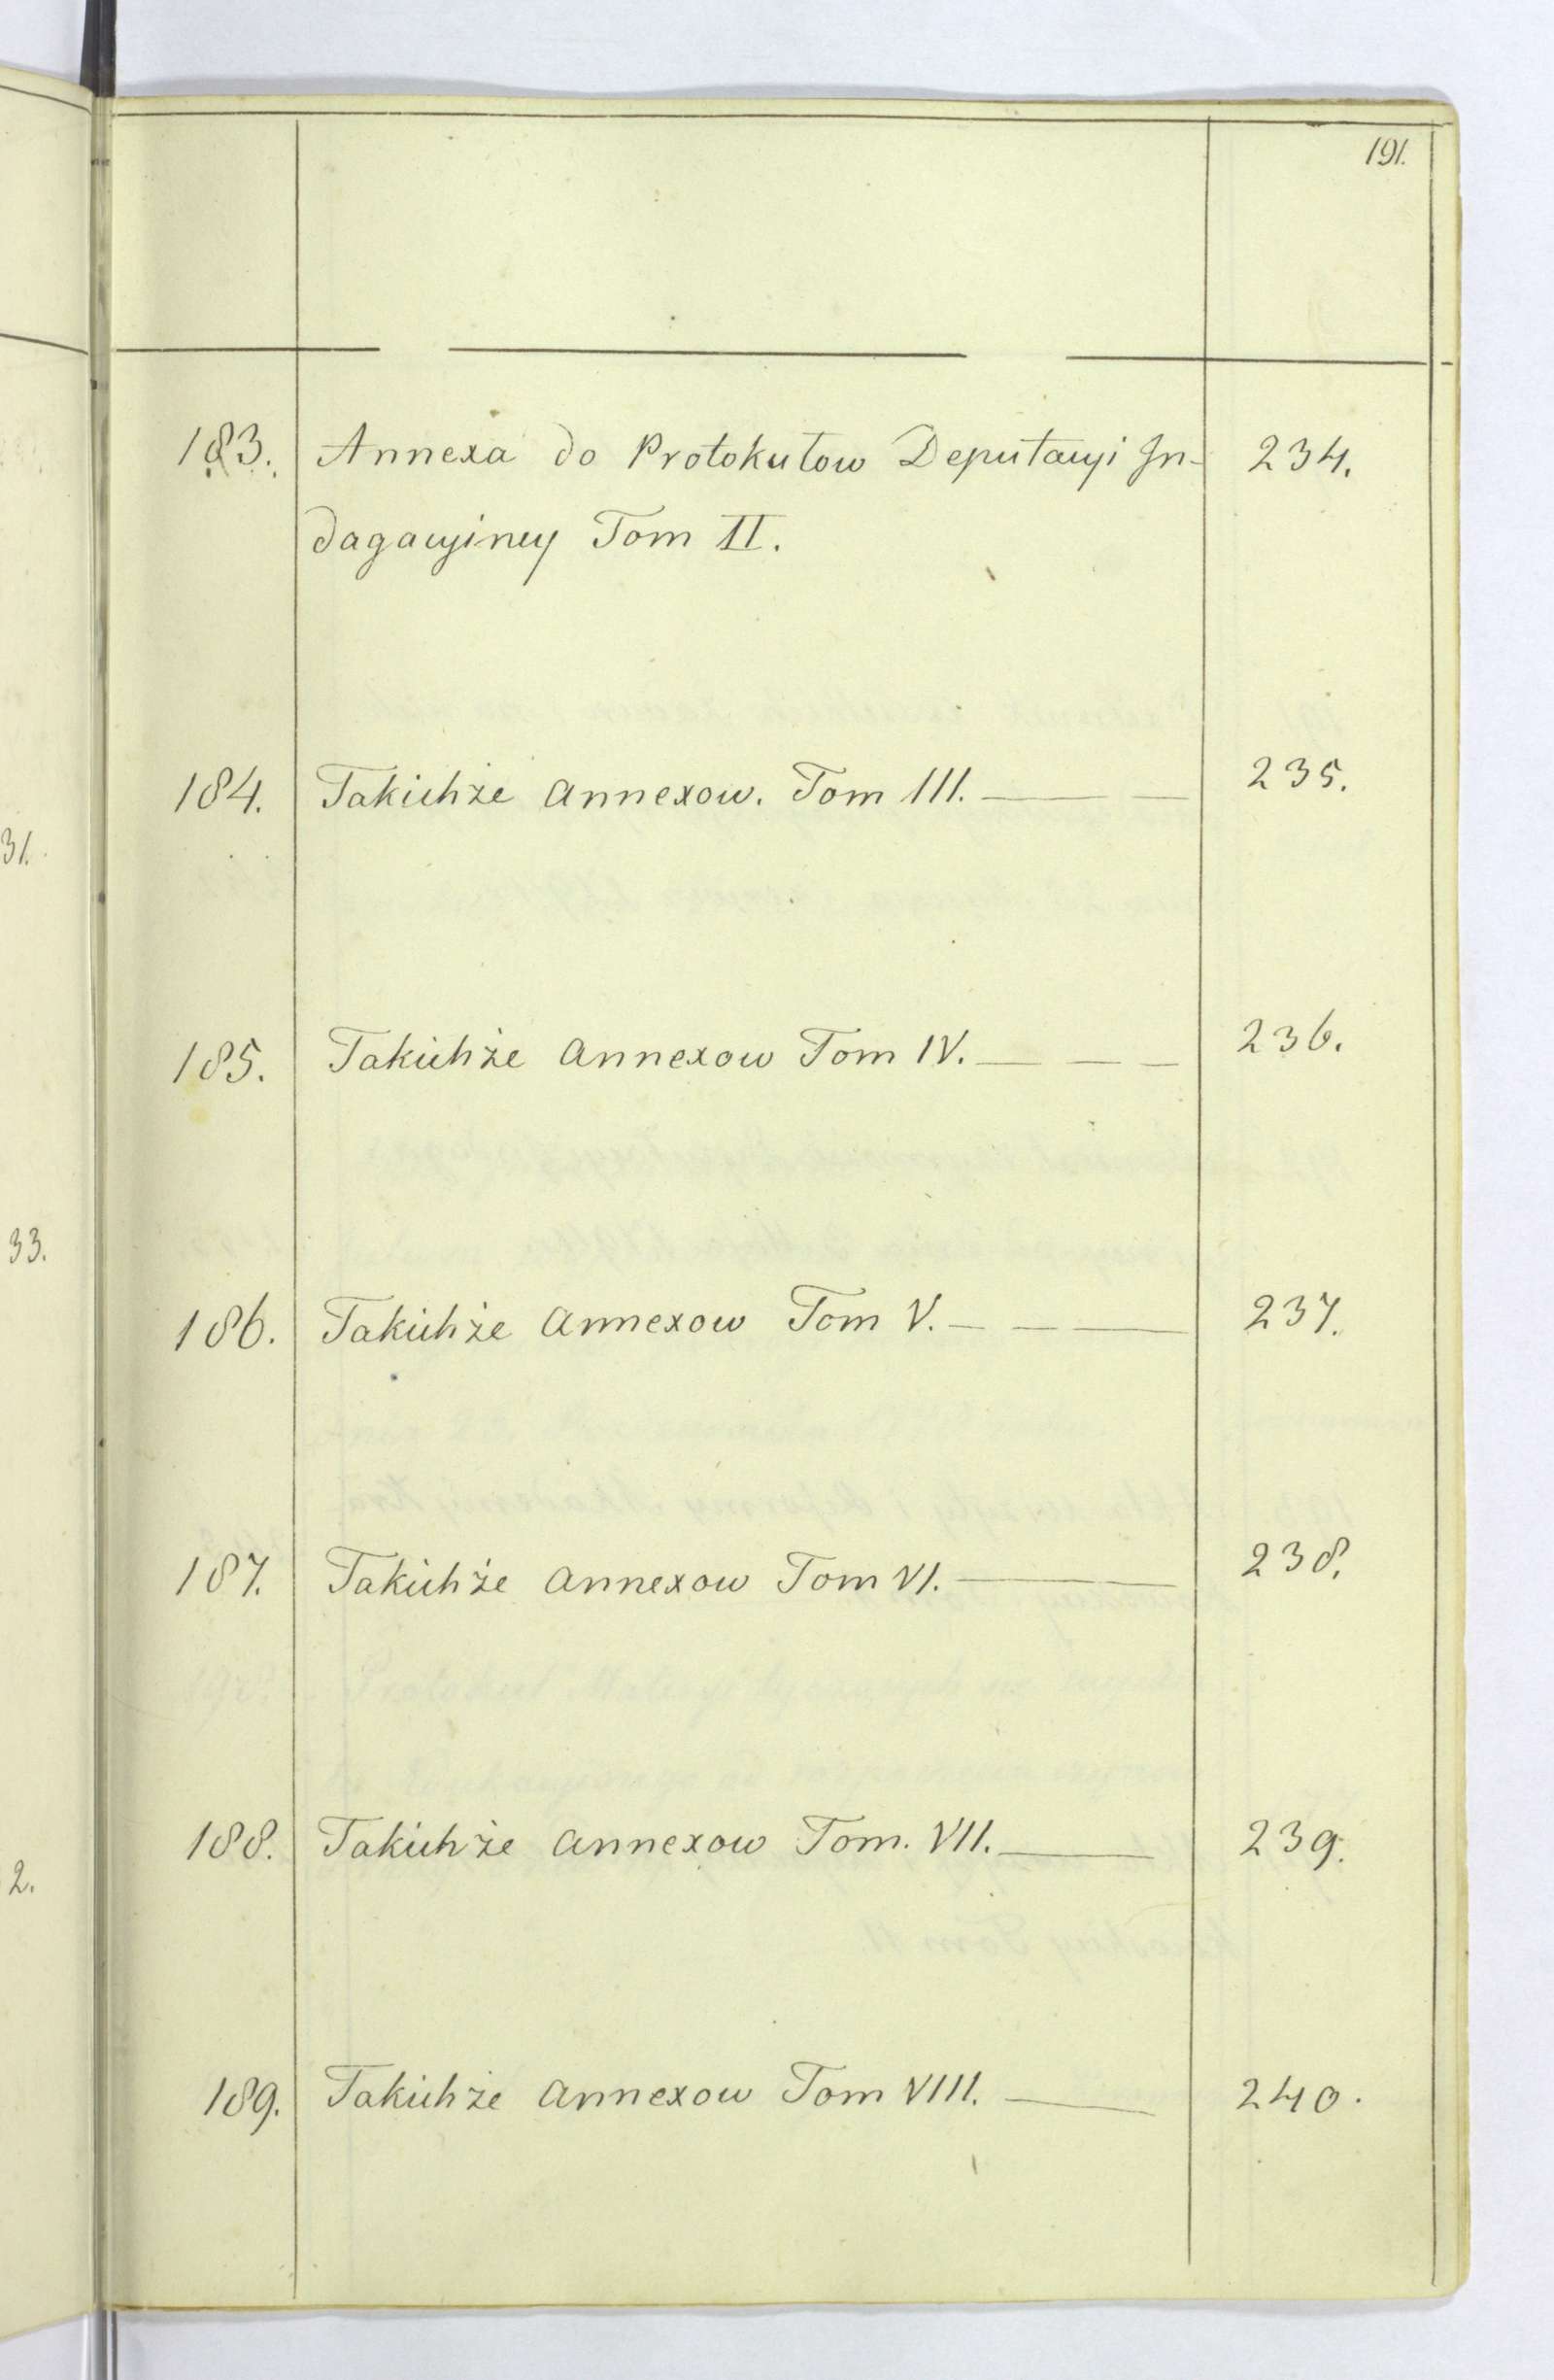 191.
183. Annexa do Protokułow Deputacyi In- 234.
dagacyiney Tom II.
184. Takichże annexow. Tom III. 235.
31.
185. Takichże annexow Tom IV. 236.
33.
186. Takichże annexow Tom V. 237.
187. Takichże annexow Tom VI. 238.
188. Takichże annexow Tom. VII. 239.
2.
189. Takichże annexow Tom VIII. 240.